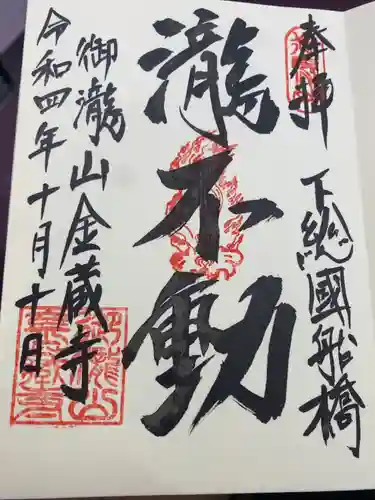 奉拝
下総國船橋
瀧不動
御瀧山金蔵寺
令和四年十月十日